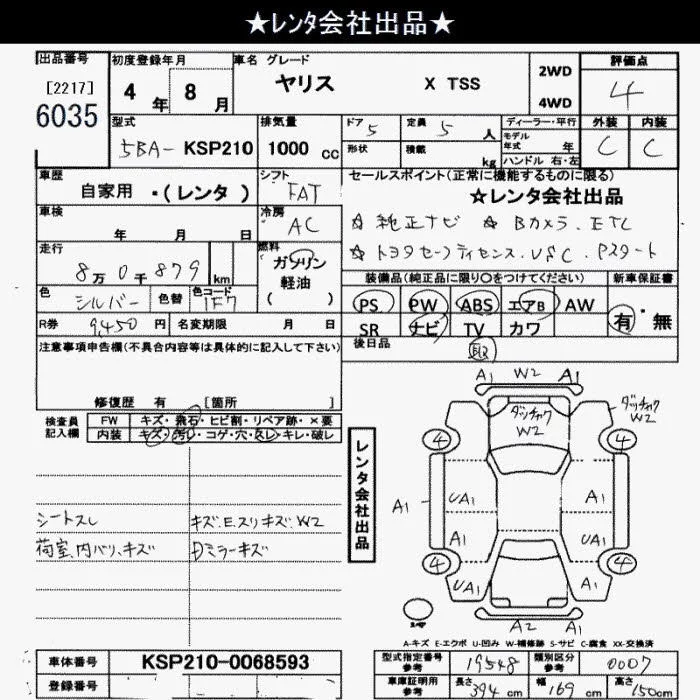 ★レンタ会社出品★
出品番号
[2217]
6035
初度登録年月
4年 8月
車名 グレード
ヤリス X TSS
2WD
4WD
評価点
4
型式
5BA- KSP210
排気量
1000 cc
ドア 5
形状
定員 5 人
積載 kg
ディーラー・平行
モデル
年式 年
ハンドル 右・左
外装 内装
C C
車歴
自家用 ・(レンタ )
シフト
FAT
セールスポイント(正常に機能するものに限る)
★レンタ会社出品
☆ 純正ナビ ☆ Bカメラ. ETC
☆トヨタセーフティセンス. VSC. Pスタート
車検
年 月 日
冷房
AC
走行
8万0千879 km
燃料
ガソリン
軽油
( )
色
シルバー
色替
色コード
1F7
R券 9,450 円
名変期限 月 日
装備品(純正品に限り○をつけてください)
新車保証書
PS PW ABS エアB AW
SR ナビ TV カワ
有・無
後日品
取
注意事項申告欄(不具合内容等は具体的に記入して下さい)
修復歴 有 [箇所 ]
検査員
記入欄
FW キズ・飛石・ヒビ割・リペア跡・×要
内装 キズ・汚レ・コゲ・穴・スレ・キレ・破レ
シートスレ
荷室、内バリ、キズ
キズ.E.スリキズ.W2
ミラーキズ
レンタ会社出品
A1 W2 A1
ダッチャク
W2
ダッチャク
W2
4 4
A1 UA1 A1
UA1 A1 UA1
4 4
UA1 A1
A1 A2 A1
A-キズ E-エクボ U-凹み W-補修跡 S-サビ C-腐食 XX-交換済
車体番号 KSP210-0068593
登録番号
型式指定番号
参考
19548
類別区分
参考
0007
車庫証明用
参考
長さ 394 cm
幅 169 cm
高さ 150cm